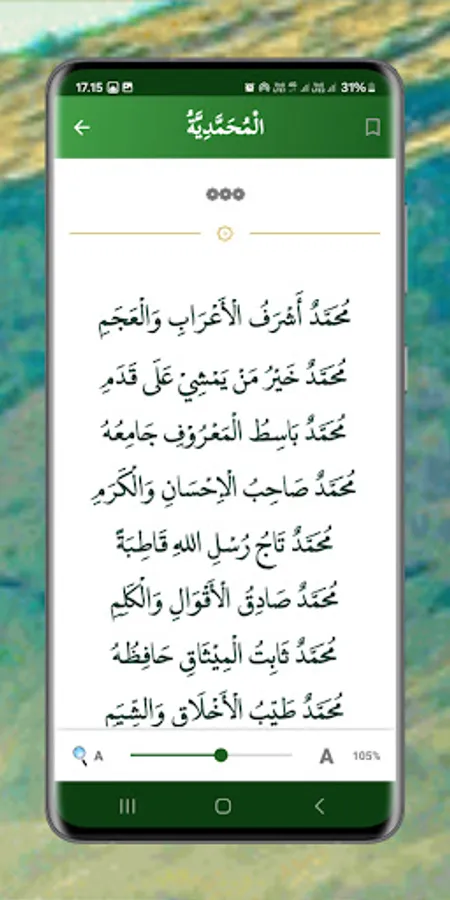 17.15 31%
الْمُحَمَّدِيَّةُ
مُحَمَّدٌ أَشْرَفُ الْأَعْرَابِ وَالْعَجَمِ
مُحَمَّدٌ خَيْرُ مَنْ يَمْشِيْ عَلَى قَدَمِ
مُحَمَّدٌ بَاسِطُ الْمَعْرُوْفِ جَامِعُهُ
مُحَمَّدٌ صَاحِبُ الْاِحْسَانِ وَالْكَرَمِ
مُحَمَّدٌ تَاجُ رُسْلِ اللهِ قَاطِبَةً
مُحَمَّدٌ صَادِقُ الْأَقْوَالِ وَالْكَلِمِ
مُحَمَّدٌ ثَابِتُ الْمِيْثَاقِ حَافِظُهُ
مُحَمَّدٌ طَيِّبُ الْأَخْلَاقِ وَالشِّيَمِ
A A 105%